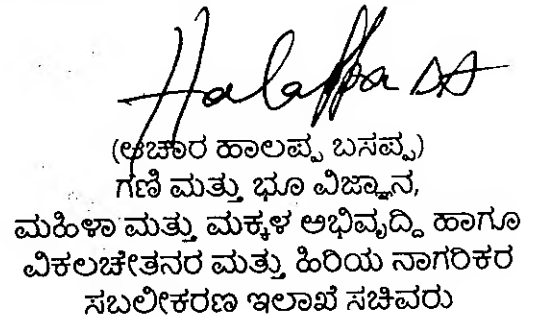 Halappa
(ಆಚಾರ ಹಾಲಪ್ಪ ಬಸಪ್ಪ)
ಗಣಿ ಮತ್ತು ಭೂ ವಿಜ್ಞಾನ,
ಮಹಿಳಾ ಮತ್ತು ಮಕ್ಕಳ ಅಭಿವೃದ್ದಿ ಹಾಗೂ
ವಿಕಲಚೇತನರ ಮತ್ತು ಹಿರಿಯ ನಾಗರಿಕರ
ಸಬಲೀಕರಣ ಇಲಾಖೆ ಸಚಿವರು